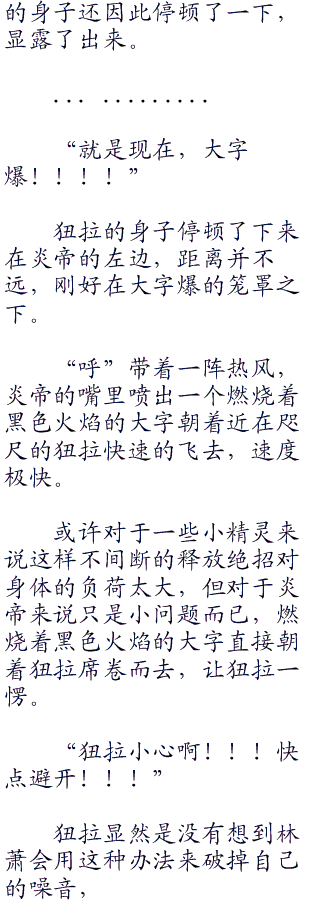 的身子还因此停顿了一下，
显露了出来。
... .........
“就是现在，大字
爆！！！！”
狃拉的身子停顿了下来
在炎帝的左边，距离并不
远，刚好在大字爆的笼罩之
下。
“呼”带着一阵热风，
炎帝的嘴里喷出一个燃烧着
黑色火焰的大字朝着近在咫
尺的狃拉快速的飞去，速度
极快。
或许对于一些小精灵来
说这样不间断的释放绝招对
身体的负荷太大，但对于炎
帝来说只是小问题而已，燃
烧着黑色火焰的大字直接朝
着狃拉席卷而去，让狃拉一
愣。
“狃拉小心啊！！！快
点避开！！！”
狃拉显然是没有想到林
萧会用这种办法来破掉自己
的噪音，